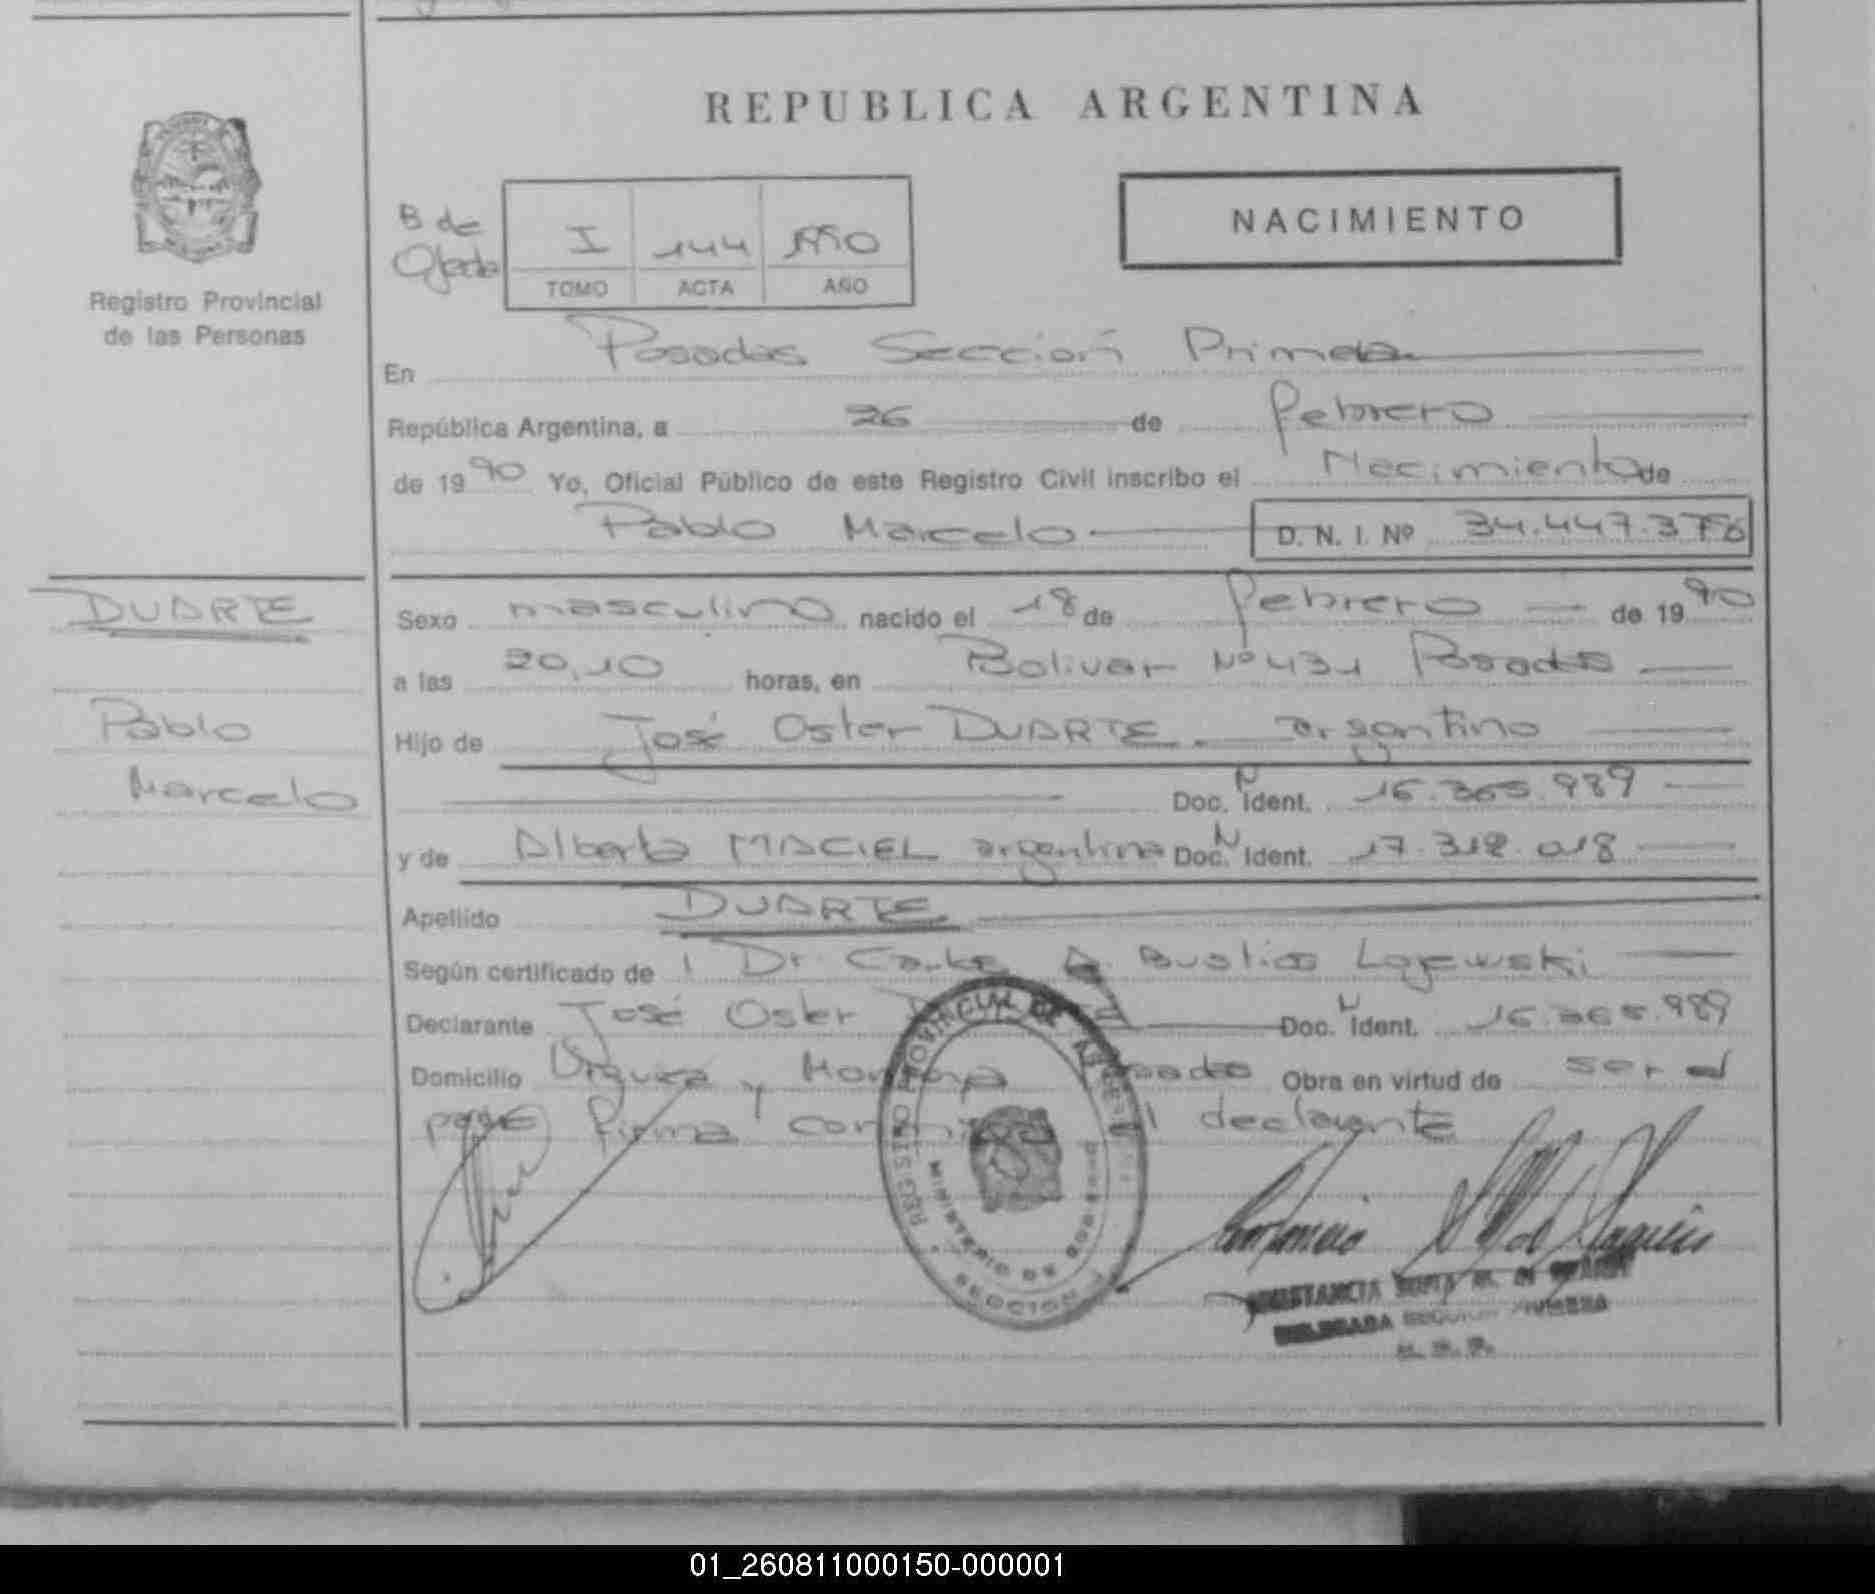 REPUBLICA ARGENTINA
Registro Provincial
de las Personas
B de
Ojeda
I 144 1990
TOMO ACTA AÑO
NACIMIENTO
En Posadas Sección Primera
República Argentina, a 26 de febrero
de 1990 Yo, Oficial Público de este Registro Civil inscribo el Nacimiento de
Pablo Marcelo D. N. I. Nº 34.447.376
DUARTE
Pablo
Marcelo
Sexo masculino nacido el 18 de febrero de 1990
a las 20,10 horas, en Bolivar Nº 431 Posadas
Hijo de José Oster DUARTE. argentino
Doc. N Ident. 16.365.989
y de Alberta MACIEL argentina Doc. N Ident. 17.312.018
Apellido DUARTE
Según certificado de Dr. A. Bustios
Declarante José Oster Doc. N Ident. 16.365.989
Domicilio Urquiza y Obra en virtud de ser el
padre firma declarante
REGISTRO PROVINCIAL DE
MINISTERIO DE GOBIERNO
SECCION
DELEGADA SECCION PRIMERA
01_260811000150-000001